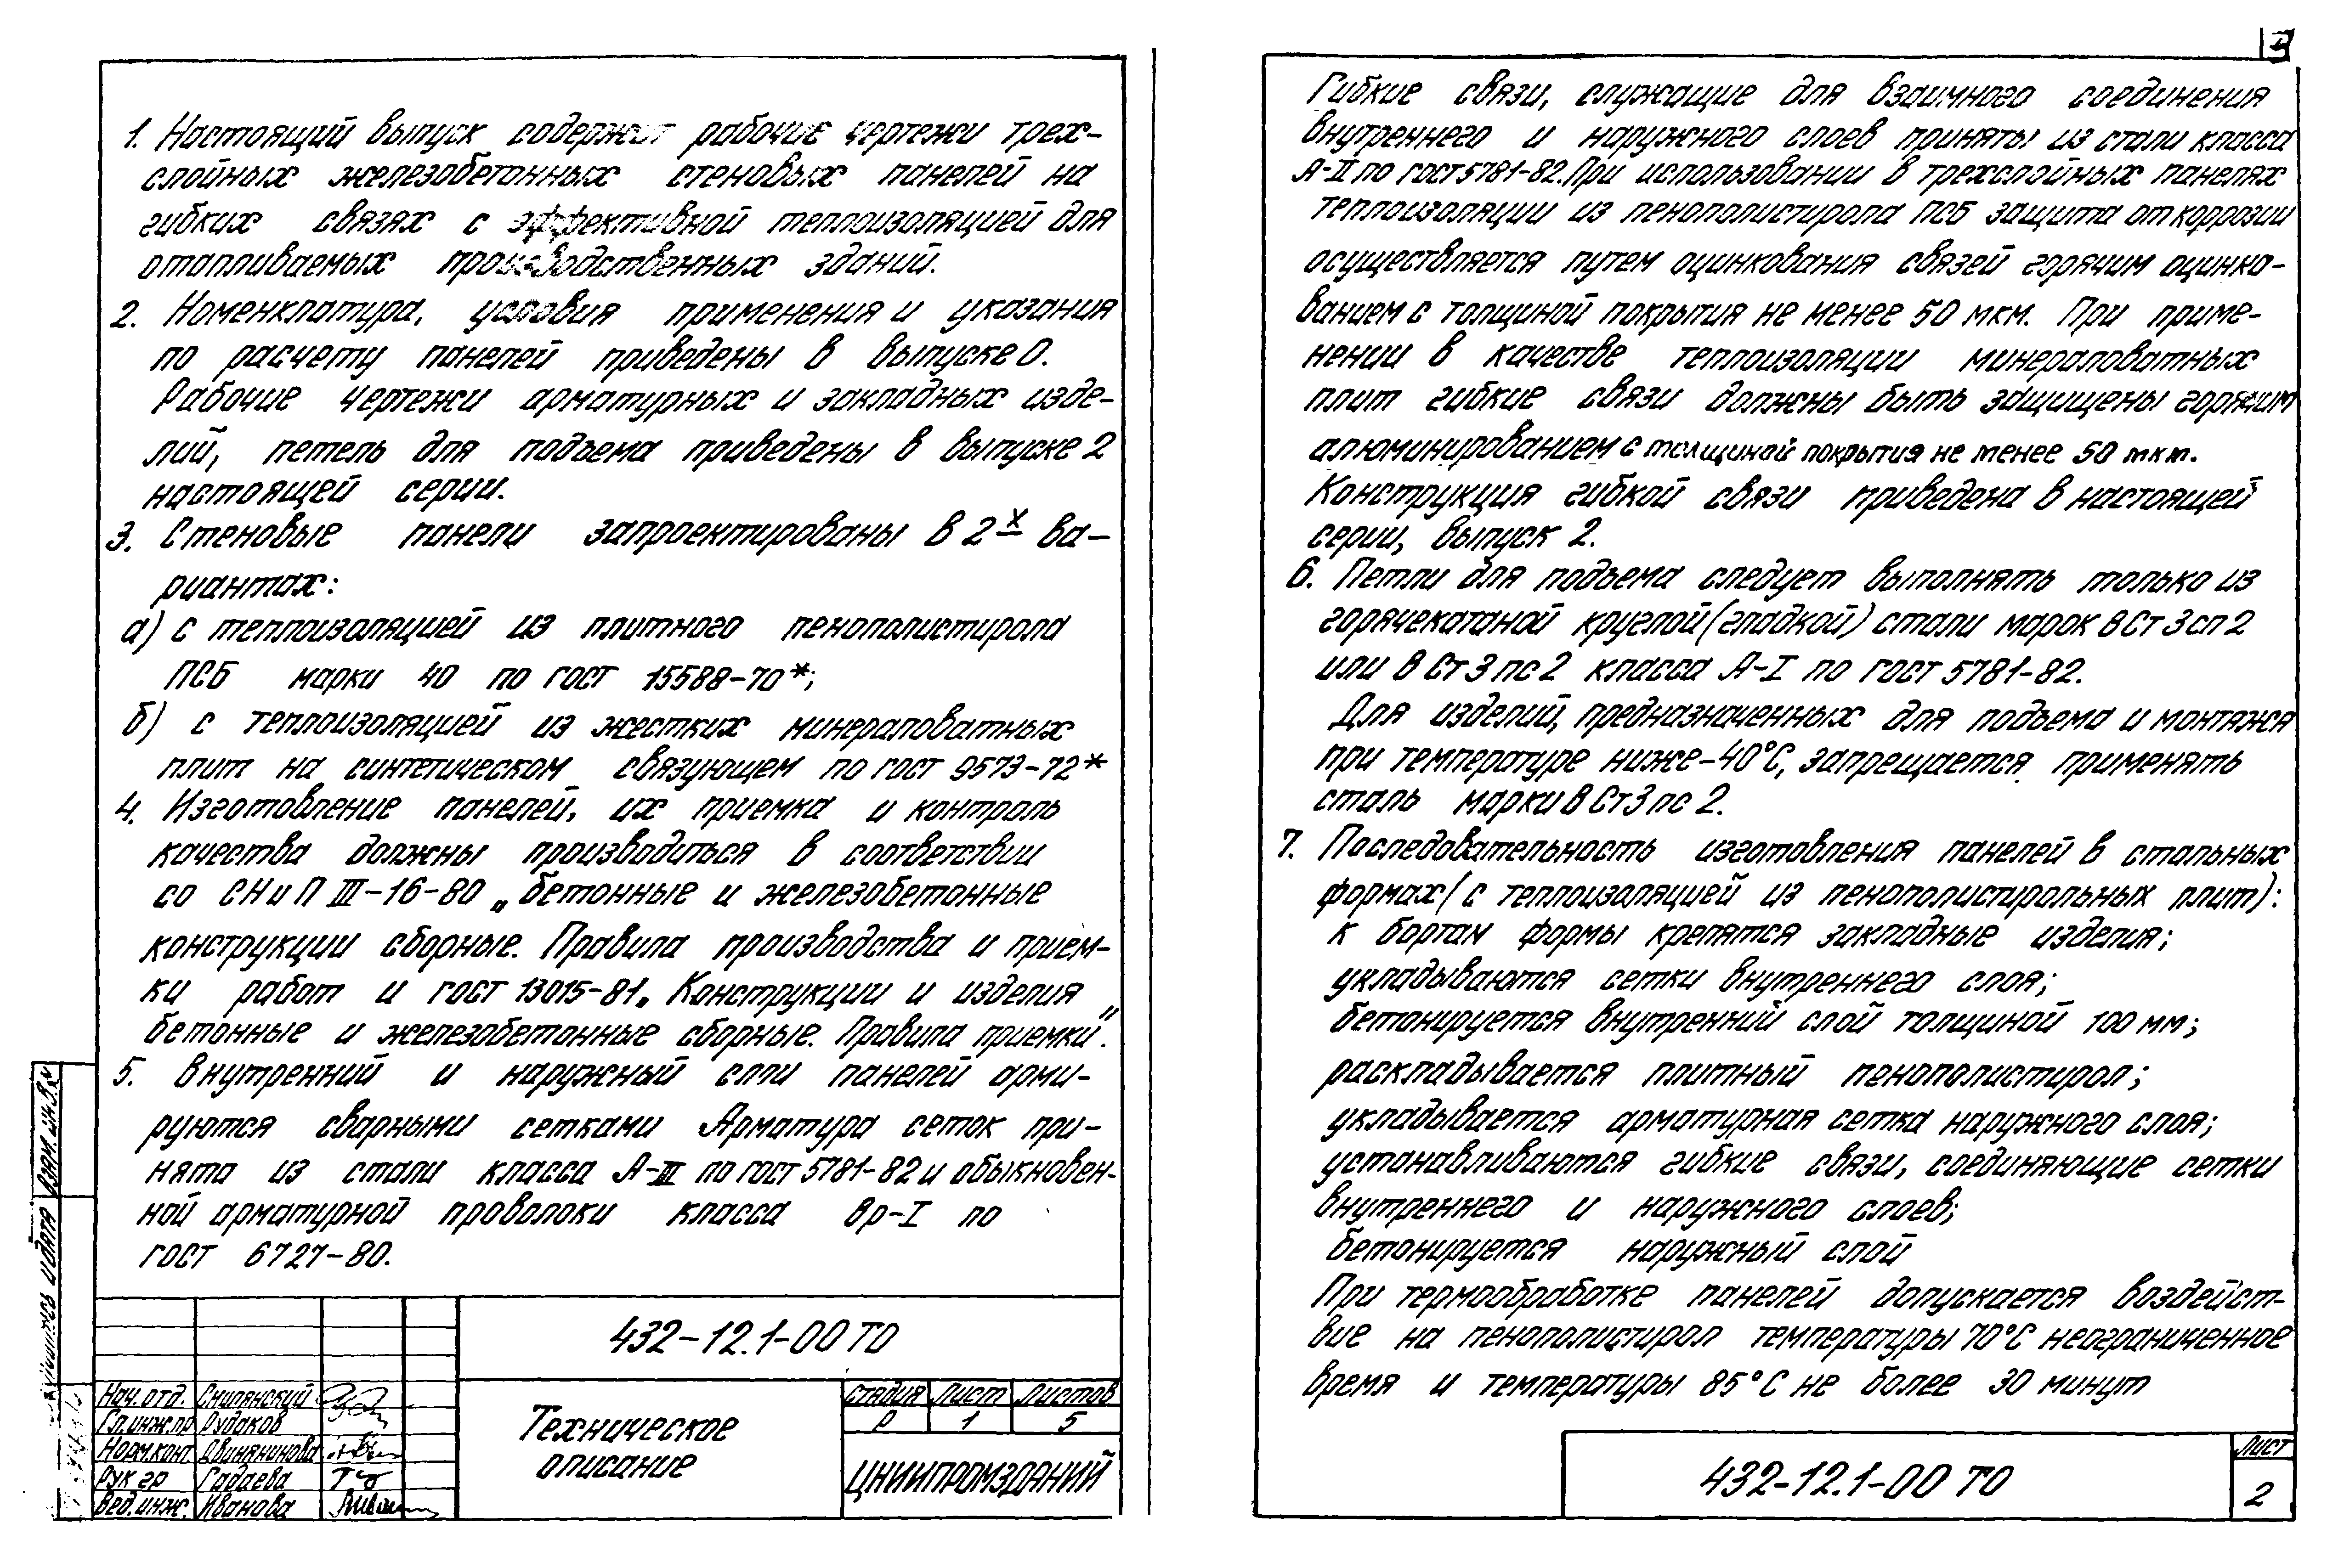 1. Настоящий выпуск содержит рабочие чертежи трех-
слойных железобетонных стеновых панелей на
гибких связях с эффективной теплоизоляцией для
отапливаемых производственных зданий.
2. Номенклатура, условия применения и указания
по расчету панелей приведены в выпуске 0.
Рабочие чертежи арматурных и закладных изде-
лий, петель для подъема приведены в выпуске 2
настоящей серии.
3. Стеновые панели запроектированы в 2х ва-
риантах:
а) с теплоизоляцией из плитного пенополистирола
ПСБ марки 40 по ГОСТ 15588-70*;
б) с теплоизоляцией из жестких минераловатных
плит на синтетическом связующем по ГОСТ 9573-72*
4. Изготовление панелей, их приемка и контроль
качества должны производиться в соответствии
со СНиП III-16-80 „Бетонные и железобетонные
конструкции сборные. Правила производства и прием-
ки работ и ГОСТ 13015-81„ Конструкции и изделия
бетонные и железобетонные сборные. Правила приемки".
5. Внутренний и наружный слои панелей арми-
руются сварными сетками Арматура сеток при-
нята из стали класса А-III по ГОСТ 5781-82 и обыкновен-
ной арматурной проволоки класса Вр-I по
ГОСТ 6727-80.
432-12.1-00 ТО
Нач.отд. Снипянский
Гл.инж.пр Рудаков
Норм.конт. Двинянинова
Рук гр Гадаева
Вед.инж. Иванова
Техническое
описание
Стадия Лист Листов
Р 1 5
ЦНИИПРОМЗДАНИЙ
Подпись и дата
Взам. инв.№
3
Гибкие связи, служащие для взаимного соединения
внутреннего и наружного слоев приняты из стали класса
А-II по ГОСТ 5781-82. При использовании в трехслойных панелях
теплоизоляции из пенополистирола ПСБ защита от коррозии
осуществляется путем оцинкования связей горячим оцинко-
ванием с толщиной покрытия не менее 50 мкм. При приме-
нении в качестве теплоизоляции минераловатных
плит гибкие связи должны быть защищены горячим
алюминированием с толщиной покрытия не менее 50 мкм.
Конструкция гибкой связи приведена в настоящей
серии, выпуск 2.
6. Петли для подъема следует выполнять только из
горячекатаной круглой (гладкой) стали марок ВСт3сп2
или ВСт3пс2 класса А-I по ГОСТ 5781-82.
Для изделий, предназначенных для подъема и монтажа
при температуре ниже -40°С, запрещается применять
сталь марки ВСт3пс2.
7. Последовательность изготовления панелей в стальных
формах (с теплоизоляцией из пенополистирольных плит):
к бортам формы крепятся закладные изделия;
укладываются сетки внутреннего слоя;
бетонируется внутренний слой толщиной 100 мм;
раскладывается плитный пенополистирол;
укладывается арматурная сетка наружного слоя;
устанавливаются гибкие связи, соединяющие сетки
внутреннего и наружного слоев;
бетонируется наружный слой
При термообработке панелей допускается воздейст-
вие на пенополистирол температуры 70°С неограниченное
время и температуры 85°С не более 30 минут
432-12.1-00 ТО
Лист
2